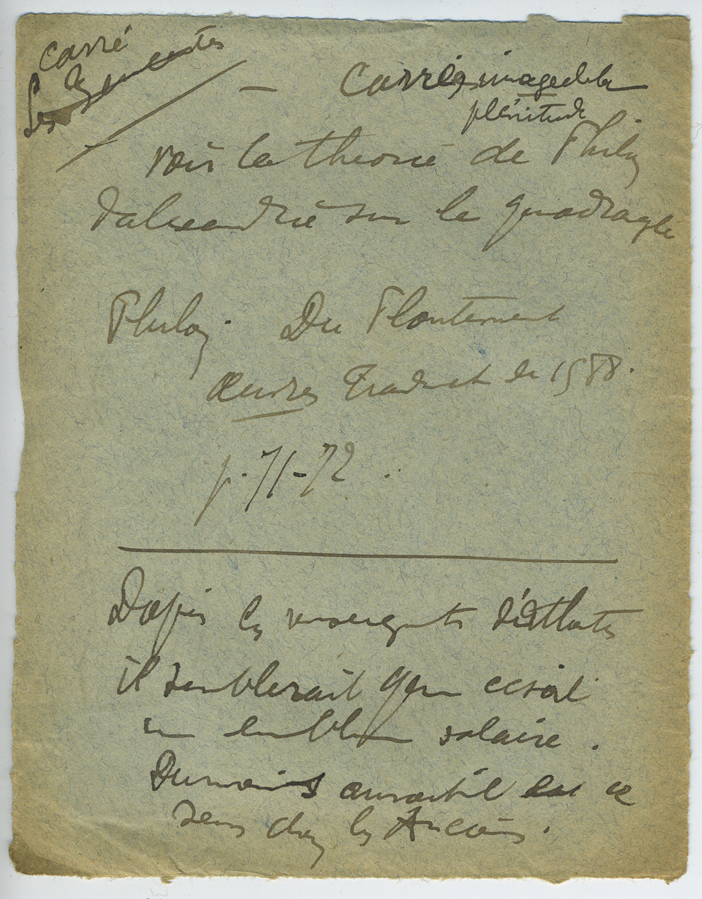 carré
Les
— Carrés image de la
plénitude
voir la theorie de Philon
dalexandrie sur le quadrangle
Philon. Du Plantement
Œuvres Traduct de 1588.
p. 71-72.
Dapres les enseignts
il semblerait que ce soit
un emblem solaire.
Du moins aurait il eu ce
sens chez les Anciens.